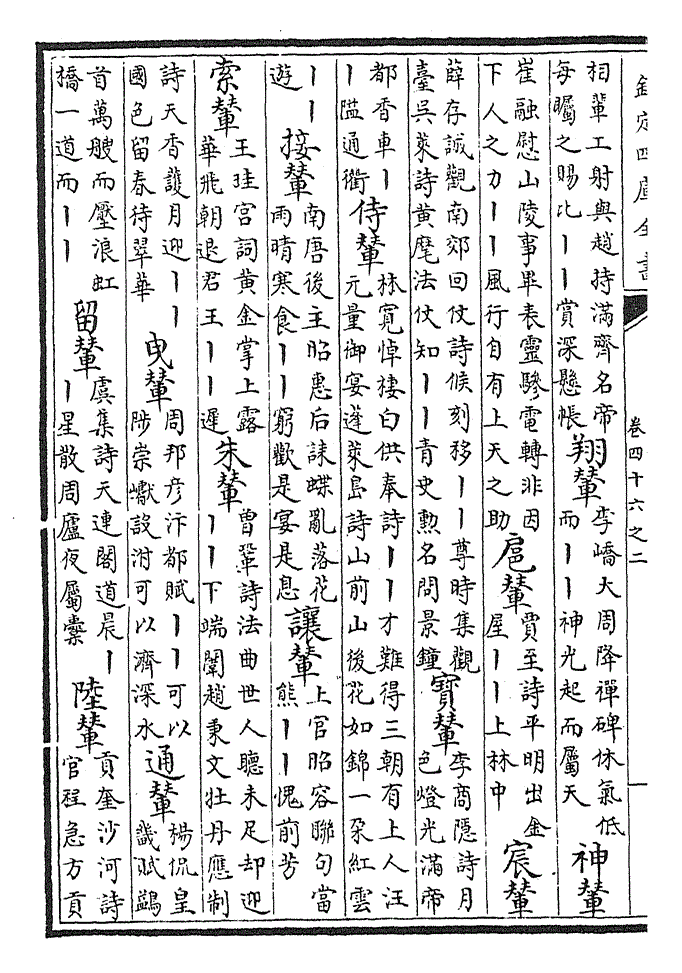 欽定四庫全書
卷四十六之二
一
相輦工射與趙持滿齊名帝
每矚之賜比丨丨賞深懸帳
翔輦
李嶠大周降禪碑休氣低
而丨丨神光起而屬天
神輦
崔融慰山陵事畢表靈驂電轉非因
下人之力丨丨風行自有上天之助
扈輦
賈至詩平明出金
屋丨丨上林中
宸輦
薛存誠觀南郊回仗詩候刻移丨丨尊時集觀
臺吳萊詩黄麾法仗知丨丨青史勲名問景鐘
寶輦
李商隱詩月
色燈光滿帝
都香車丨
丨隘通衢
侍輦
林寛悼棲白供奉詩丨丨才難得三朝有上人汪
元量御宴蓬萊島詩山前山後花如錦一朶紅雲
丨丨
遊
接輦
南唐後主昭惠后誄蝶亂落花
雨晴寒食丨丨窮歡是宴是息
讓輦
上官昭容聯句當
熊丨丨愧前芳
索輦
王珪宫詞黄金掌上露
華飛朝退君王丨丨遲
朱輦
曾鞏詩法曲世人聽未足却迎
丨丨下端闈趙秉文牡丹應制
詩天香護月迎丨丨
國色留春待翠華
曳輦
周邦彦汴都賦丨丨可以
陟崇巘設泭可以濟深水
通輦
楊侃皇
畿賦鷁
首萬艘而壓浪虹
橋一道而丨丨
留輦
虞集詩天連閣道晨丨
丨星散周廬夜屬櫜
陸輦
貢奎沙河詩
官程急方貢